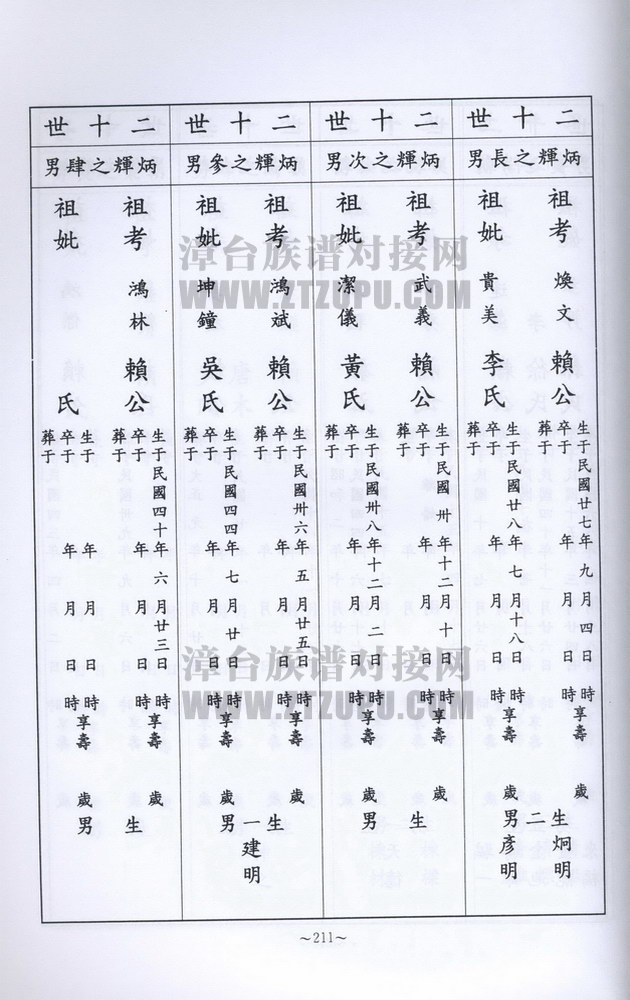 二十世
炳輝之長男
祖考 煥文 賴公
生于民國廿七年九月四日時享壽歲
卒于年月日時
葬于
祖妣 貴美 李氏
生于民國廿八年七月十八日時享壽歲
卒于年月日時
葬于
生二男
炯明
彥明
二十世
炳輝之次男
祖考 武義 賴公
生于民國卅年十二月十日時享壽歲
卒于年月日時
葬于
祖妣 潔儀 黃氏
生于民國卅八年十二月二日時享壽歲
卒于年月日時
葬于
生男
二十世
炳輝之參男
祖考 鴻斌 賴公
生于民國卅六年五月廿五日時享壽歲
卒于年月日時
葬于
祖妣 坤鐘 吳氏
生于民國四四年七月廿日時享壽歲
卒于年月日時
葬于
生一男
建明
二十世
炳輝之肆男
祖考 鴻林 賴公
生于民國四十年六月廿三日時享壽歲
卒于年月日時
葬于
祖妣 氏
生于年月日時享壽歲
卒于年月日時
葬于
生男
~211~
漳台族谱对接网
WWW.ZTZUPU.COM
漳台族谱对接网
WWW.ZTZUPU.COM